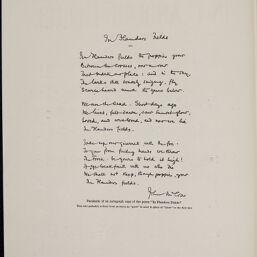 In Flanders Fields

In Flanders fields the poppies grow
Between the crosses, row on row
That mark our place: and in the sky
The larks still bravely singing, fly
Scarce heard amid the guns below.

We are the Dead. Short days ago
We lived, felt dawn, saw sunset glow,
Loved, and were loved, and now we lie
In Flanders fields.

Take up our quarrel with the foe:
To you from failing hands we throw
The torch: be yours to hold it high!
If ye break faith with us who die
We shall not sleep, though poppies grow
In Flanders fields.

John McCrae

Facsimile of an autograph copy of the poem "In Flanders Fields"